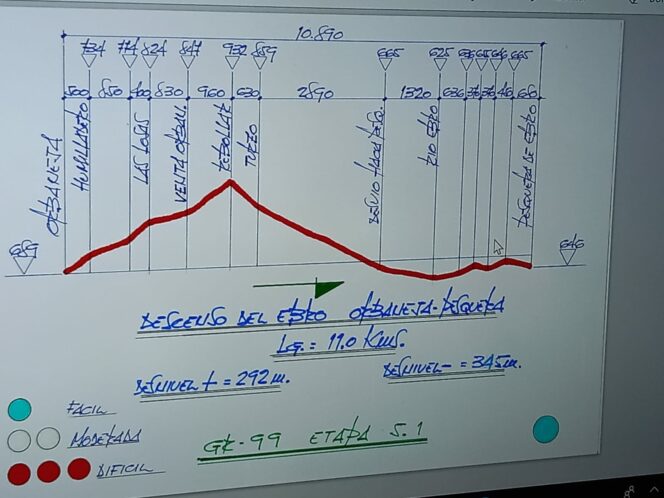 10.890
734 774 824 847 932 859 665 625 636 656 646 665
500 850 400 830 960 630 2890 1320 636 680
ORBANETA
HUMILLADERO
LAS LOSAS
VENTA ORBAN.
REBOLLAR
TUEZO
DESVIO
RIO EBRO
PESQUERA DE EBRO
689
646
DESCENSO DEL EBRO ORBANETA-PESQUERA
LG. = 11.0 KMS.
DESNIVEL + = 292 M.
DESNIVEL - = 345 M.
FACIL
MODERADA
DIFICIL
GR-99 ETAPA 5.1